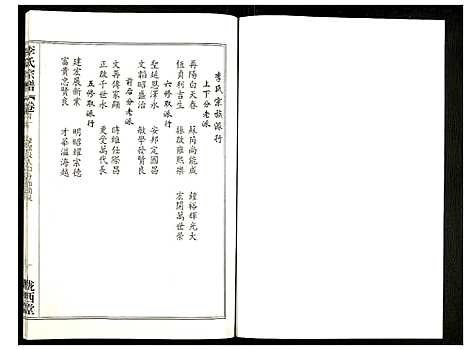 李氏宗族派行
上下分老派
再陽白天春 蘇芮尚能成 鍾裕輝光大
恆貞利吉生 振啟雍熙樂 宏開萬世榮
六修取派行
聖延恩澤永 安邦定國昌
文明昭盛治 敬學發賢良
前后分老派
文再傳家頤 時維仕際昌
正啟子世永 更受萬代長
五修取派行
建宏展新業 明昭耀宗德
富貴忠賢良 才華溢海越
李氏宗譜 卷首
隴西堂